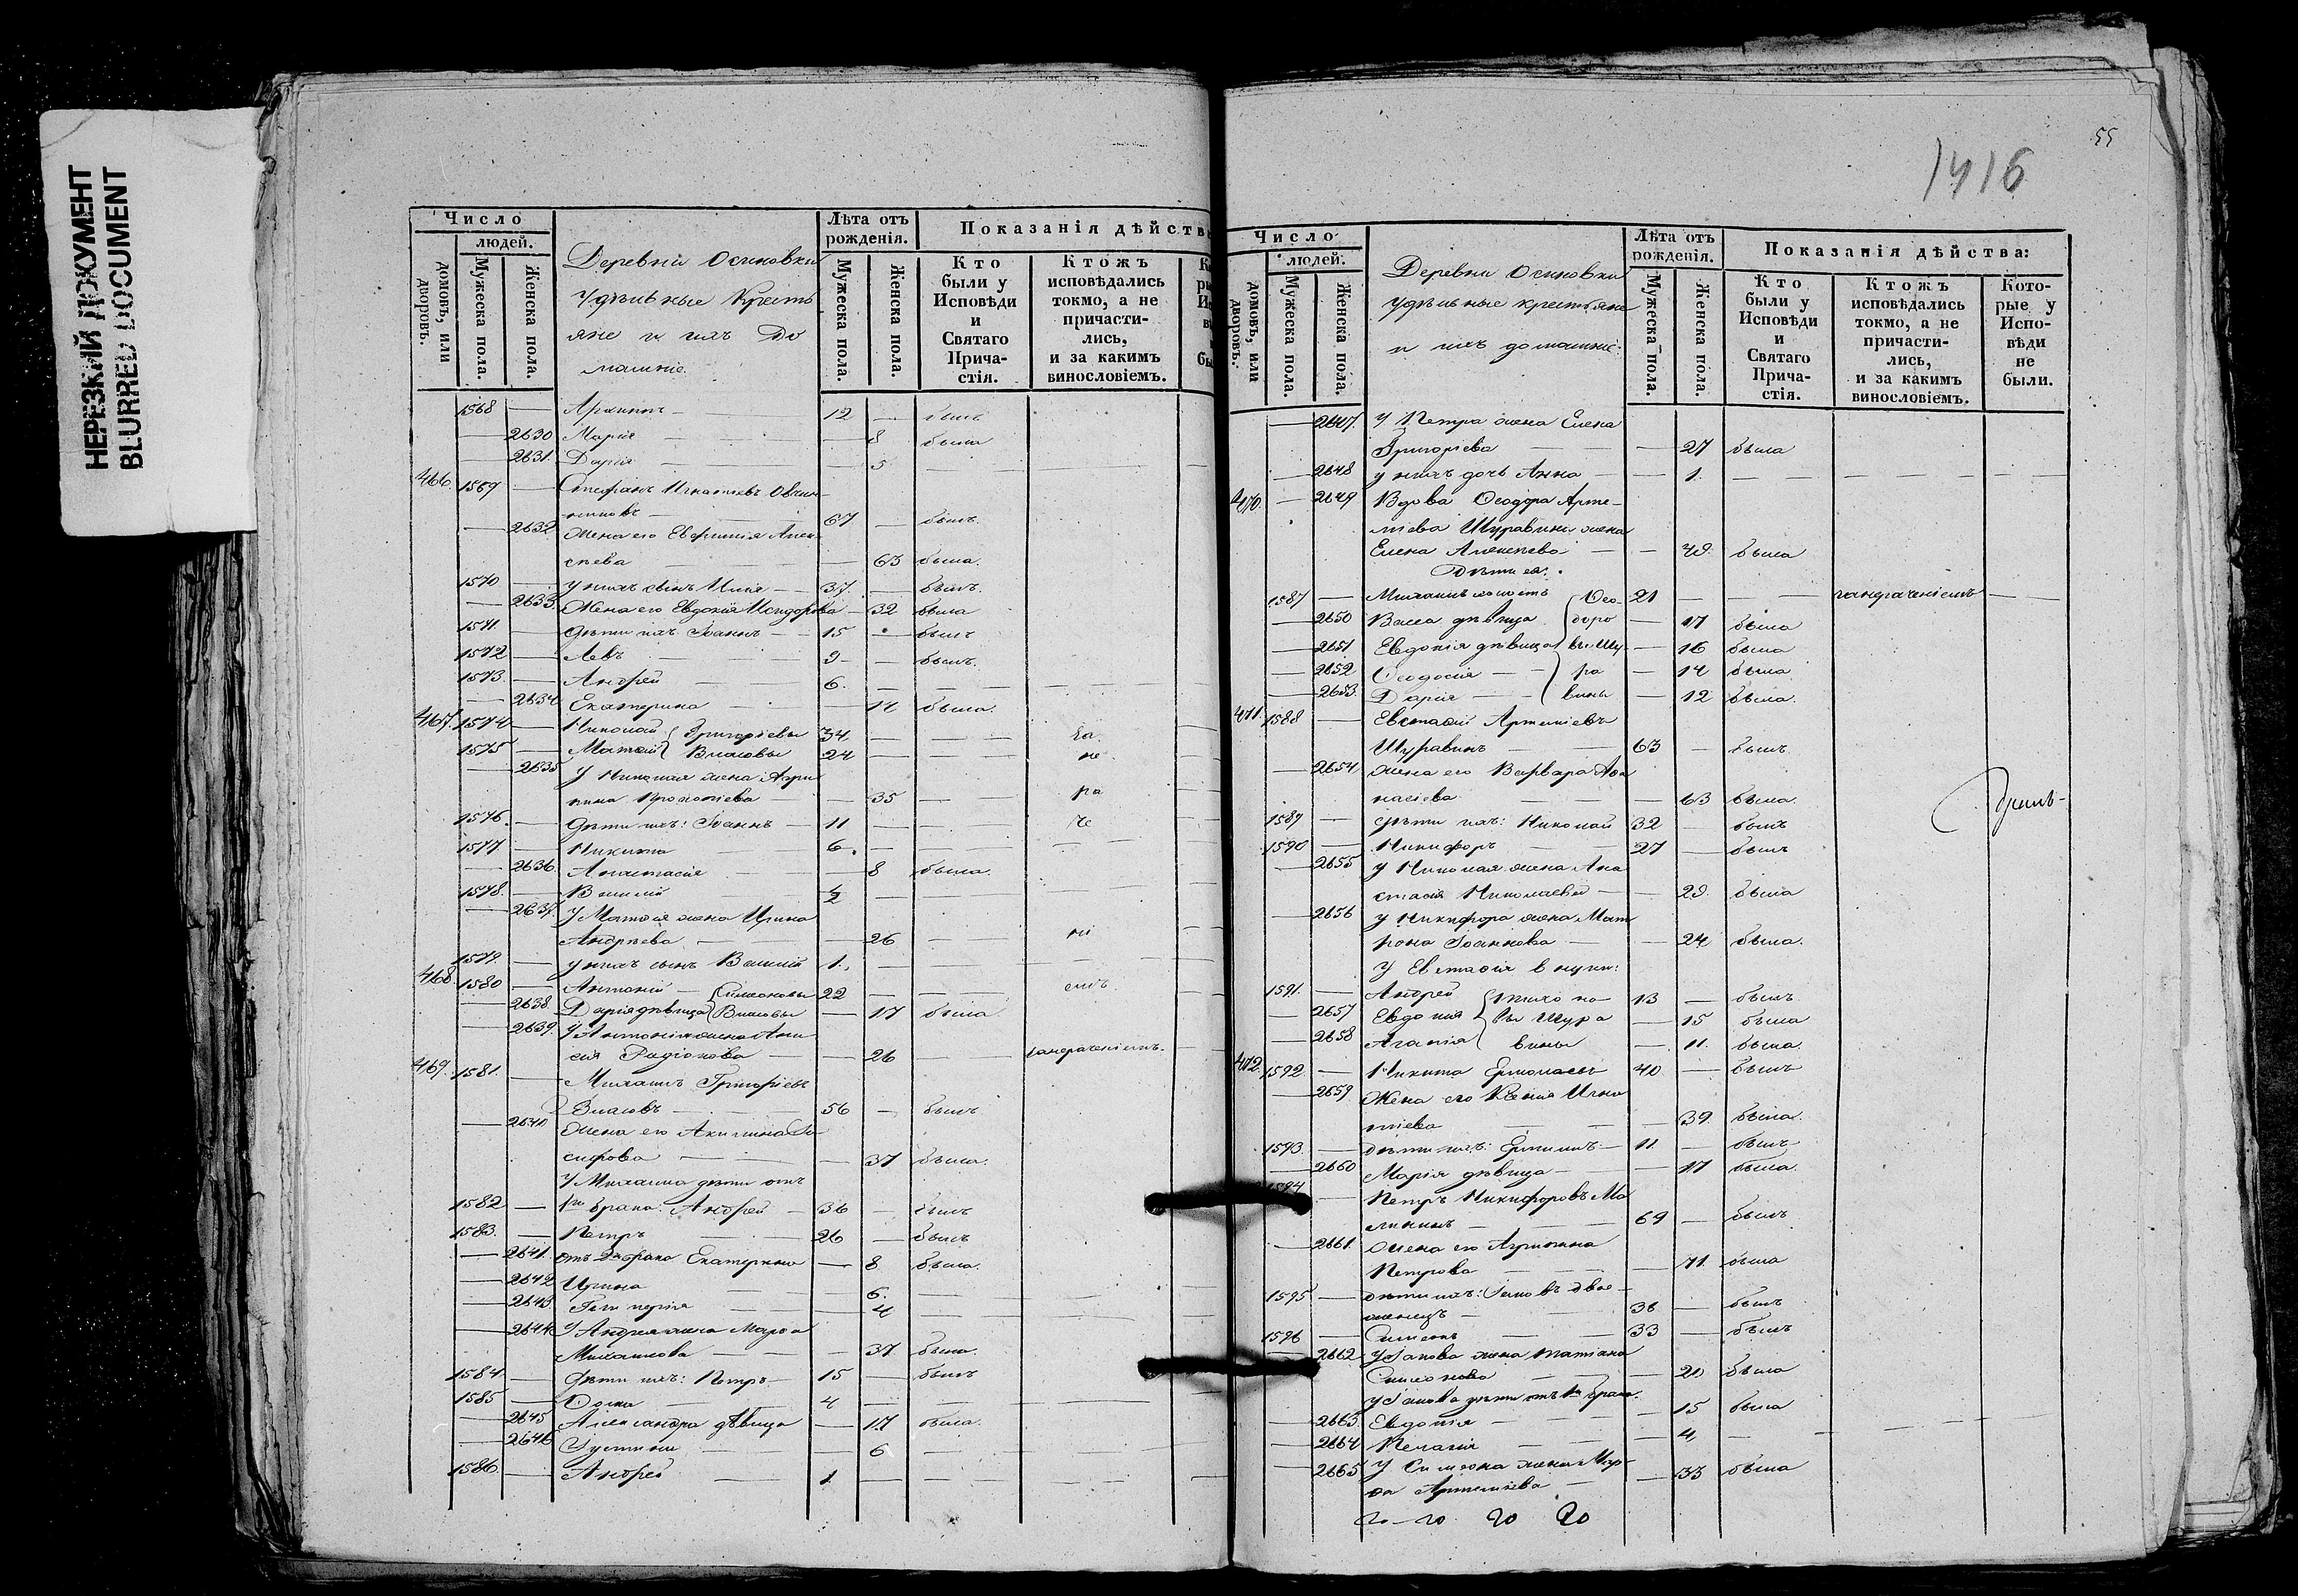 НЕРЕЗКИЙ ДОКУМЕНТ
BLURRED DOCUMENT
Число
людей.
домовъ, или дворовъ.
Мужеска пола.
Женска пола.
Деревни Осиновки
удѣльные кресть
яне и ихъ до
машніе.
Лѣта отъ
рожденія.
Мужеска пола.
Женска пола.
Показанія дѣйств
Кто
были у
Исповѣди
и
Святаго
Прича-
стія.
Ктожъ
исповѣдались
токмо, а не
причасти-
лись,
и за какимъ
винословіемъ.
1568 — Архипъ — 12 — былъ
— 2630 Марія — — 8 была
— 2631 Дарія — — 5 — —
466. 1569 — Стефанъ Игнатіевъ Овчин-
никовъ — 67 — былъ.
— 2632 Жена его Евфимія Алек-
сѣева — — 63 была.
1570 — у нихъ сынъ Илія — 37. — былъ.
— 2633 Жена его Евдокія Исидорова — 32 была
1571 — дѣти ихъ Іоаннъ — 15 — былъ
1572 — Левъ — 9 — былъ.
1573. — Андрей — 6. — — —
— 2634 Екатерина — — 14 была.
467. 1574 — Николай Григоріевы 34 — — за
1575 — Матѳій Власовы 24 — — не
— 2635 У Николая жена Агри
пина Прокопіева — — 35 — ра
1576. — дѣти ихъ: Іоаннъ — 11 — — че
1577 — Никита — 6. — — —
— 2636 Анастасія — — 8 была.
1578. — Василій — 2 — —
— 2637. У Матѳія жена Ирина
Андреева — — 26 — ні
1579. — у нихъ сынъ Василій 1. — — —
468. 1580 — Антоній — Симеоновы 22 — — емъ.
— 2638 Дарія дѣвица Власовы — 17 была
— 2639. У Антонія жена Ани
сія Радіонова — — 26 — занераченіемъ.
469. 1581. — Михаилъ Григоріевъ
Власовъ — 56 — былъ
— 2640 Жена его Акилина Іо
сифова — — 37 была.
У Михаила дѣти отъ
1582 — 1го брака: Андрей — 36 — былъ
1583. — Петръ — 26 — былъ
— 2641. отъ 2го брака Екатерина — 8 была.
— 2642 Ирина — — 6. — —
— 2643 Гликерія — — 4 — —
— 2644 У Андрея жена Марѳа
Михаилова — — 37 была.
1584. — дѣти ихъ: Петръ — 15 — былъ
1585 — Ѳома — 4 — —
— 2645 Александра дѣвица — 17 была.
— 2646 Устинія — — 6 —
1586. — Андрей — 1 — — —
55
1416
Число
людей.
домовъ, или дворовъ.
Мужеска пола.
Женска пола.
Деревни Осиновки
удѣльные крестьяне
и ихъ домашніе.
Лѣта отъ
рожденія.
Мужеска пола.
Женска пола.
Показанія дѣйства:
Кто
были у
Исповѣди
и
Святаго
Прича-
стія.
Ктожъ
исповѣдались
токмо, а не
причасти-
лись,
и за какимъ
винословіемъ.
Кото-
рые у
Испо-
вѣди
не
были.
— 2647. У Петра жена Елена
Григоріева — — 27 была
— 2648 у нихъ дочь Анна — — 1. — — — —
470. — 2649 Вдова Ѳеодора Арте-
міева Шуравина жена
Елена Алексѣева — — 49. была
Дѣти ея:
1587 — Михаилъ холостъ Ѳео- 21 — — занераченіемъ —
— 2650 Васса дѣвица доро — 17 была
— 2651 Евдокія дѣвица вы Шу- — 16 была
— 2652 Ѳеодосія — ра — 14 была
— 2653. Дарія — вины — 12 была.
471. 1588 — Евстафій Артеміевъ
Шуравинъ — 63 — былъ
— 2654 жена его Варвара Аѳа
насіева — — 63 была.
1589 — дѣти ихъ: Николай 32 — былъ
1590 — Никифоръ — 27 — былъ
— 2655 У Николая жена Ана
стасія Николаева — — 29. была
— 2656 У Никифора жена Мат
рона Іоаннова — — 24 была.
У Евстафія внуки:
1591. — Андрей Тихо но 13 — былъ
— 2657 Евдокія вы Шура — 15 была
— 2658 Агапія вины — 11. была.
472. 1592. — Никита Ермолаевъ 40 — былъ
— 2659 Жена его Ксенія Игна
тіева — — 39. была.
1593. — дѣти ихъ: Ермилъ — 11 — былъ
— 2660 Марія дѣвица — — 17 была.
1594 — Петръ Никифоровъ Ма
лининъ — 69 — былъ
— 2661. Жена его Агрипина
Петрова — — 71. была
1595 — дѣти ихъ: Іаковъ двое-
женецъ — 38 — былъ
1596 — Симеонъ — 33 — былъ
— 2662 У Іакова жена Татіана
Симеонова — — 20 была
У Іакова дѣти отъ 1го брака:
— 2663. Евдокія — — 15 была
— 2664 Пелагія — — 4 — — — —
— 2665 У Симеона жена Мар-
ѳа Артеміева — — 33 была
20 — 20 20 20